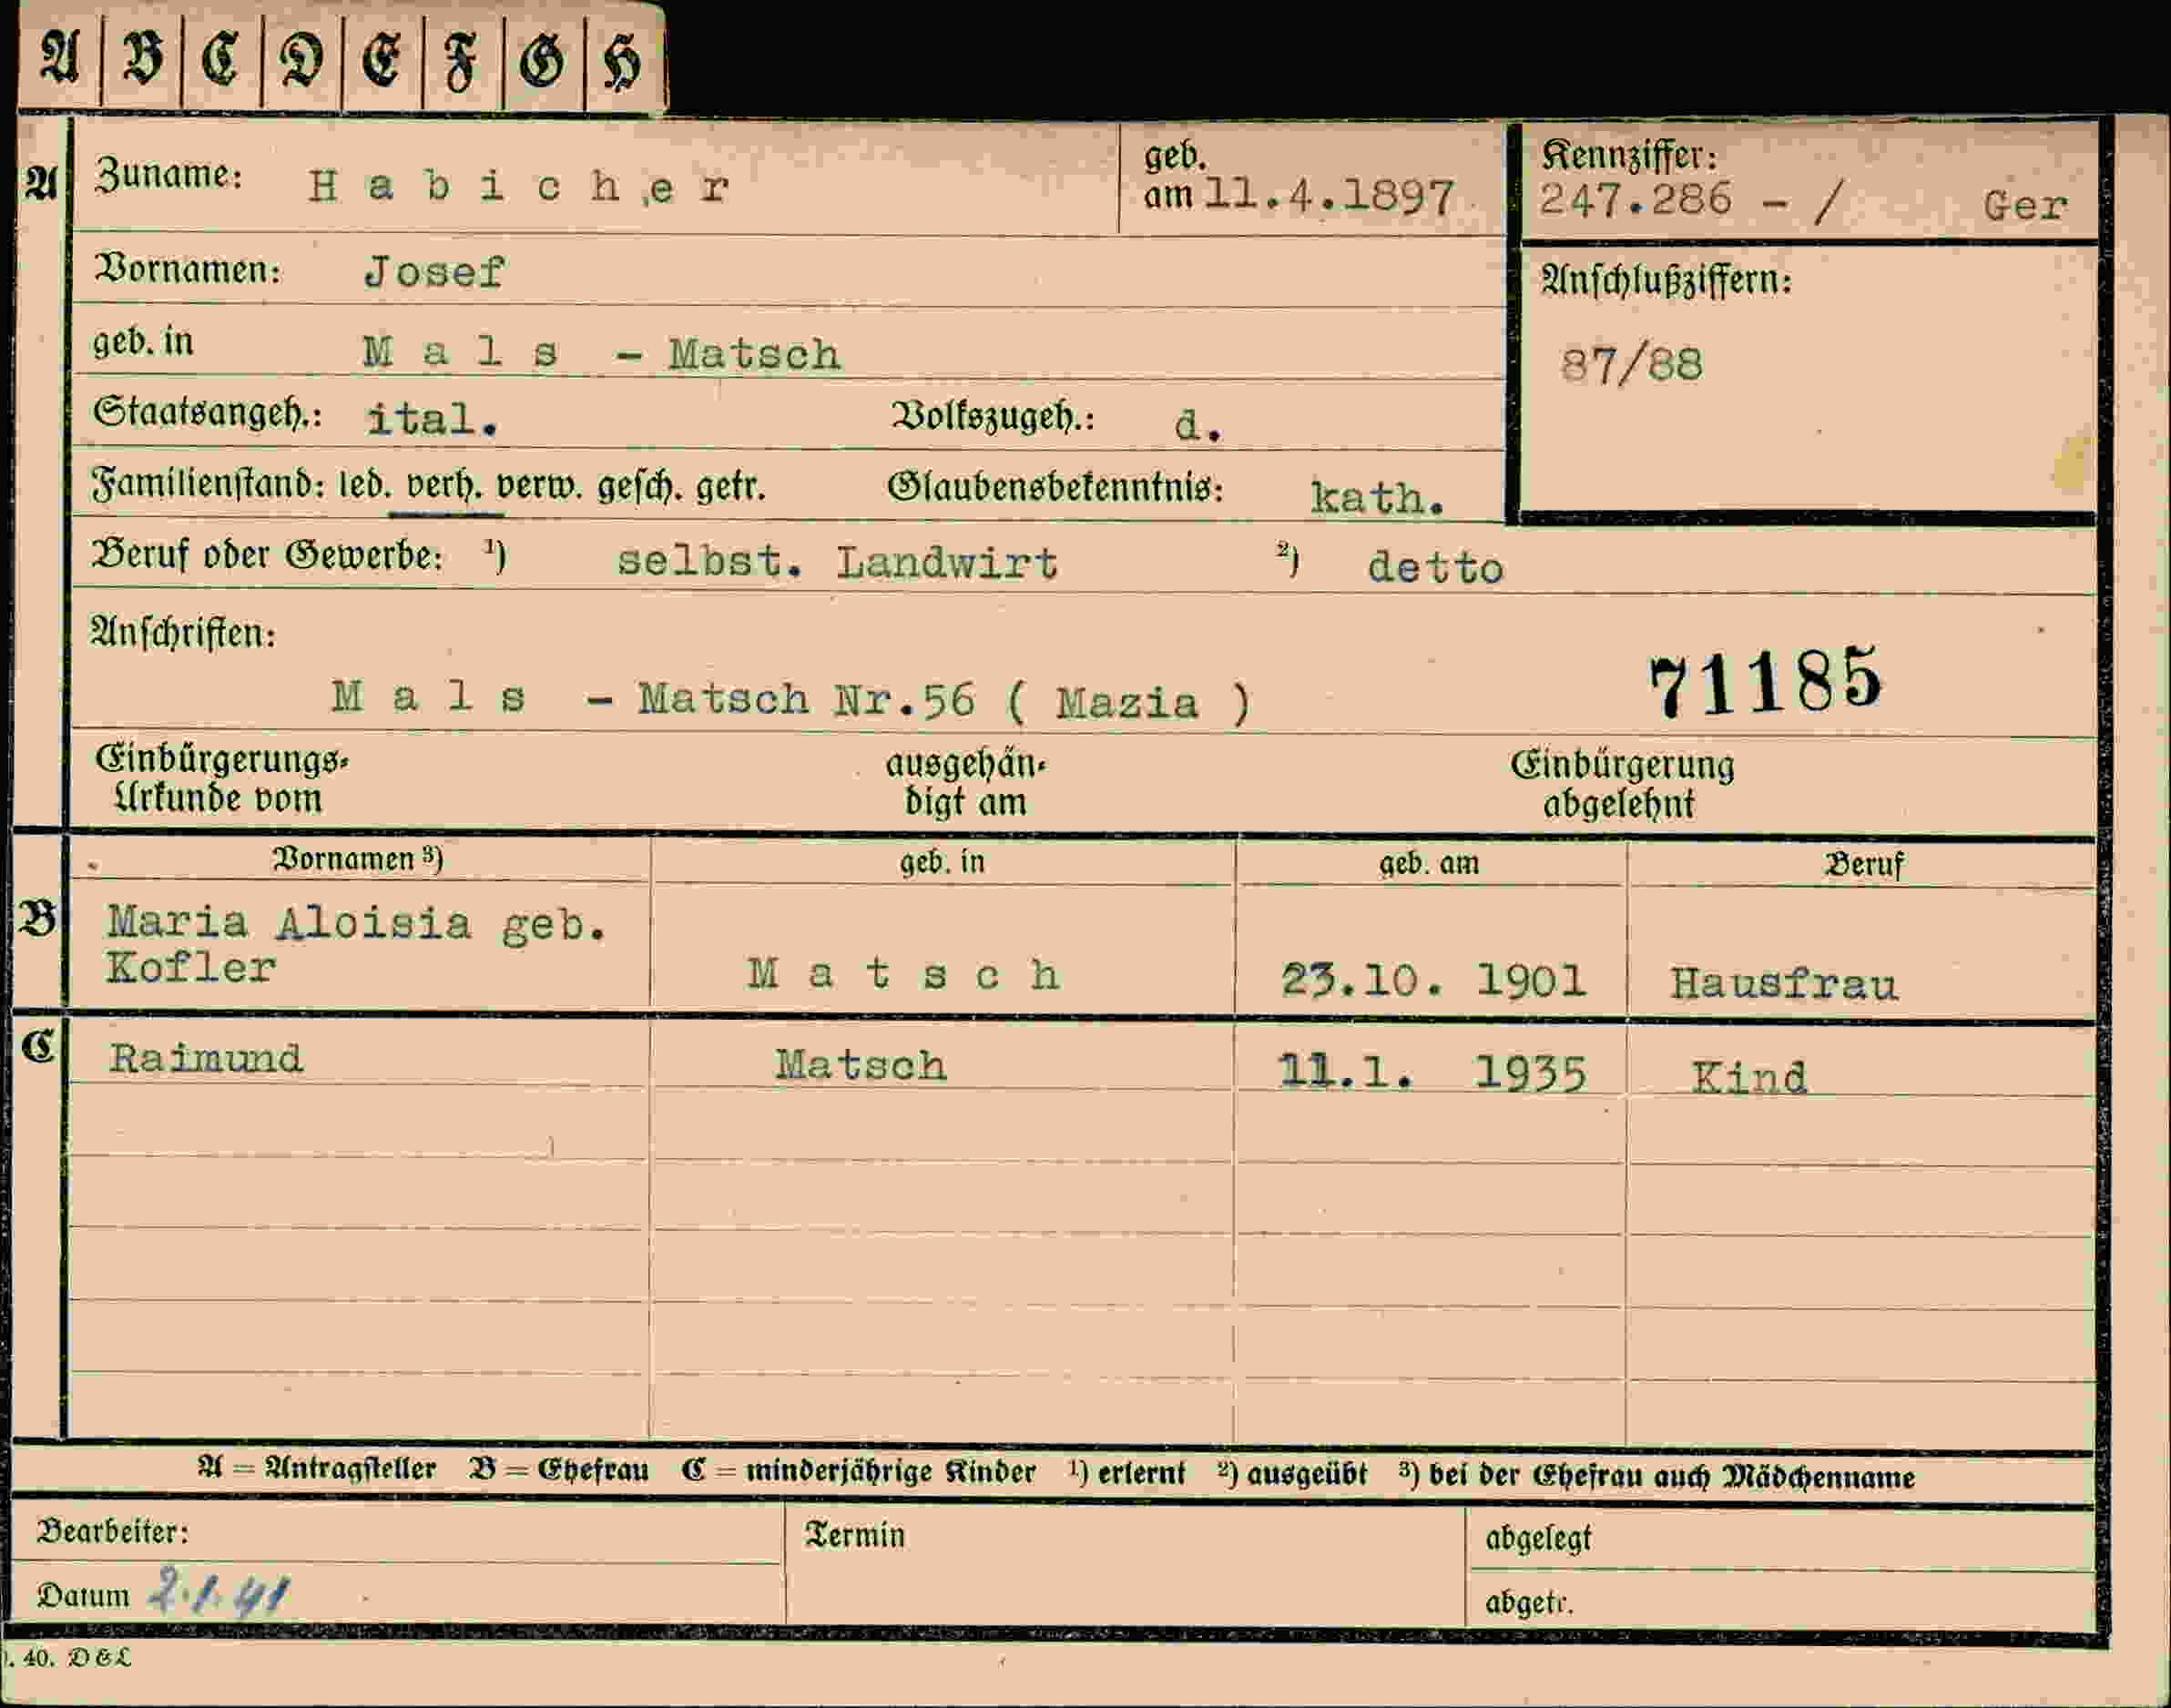 A B C D E F G H
A Zuname: Habicher geb. am 11.4.1897 Kennziffer: 247.286 - / Ger
Vornamen: Josef Anschlußziffern:
geb. in Mals - Matsch 87/88
Staatsangeh.: ital. Volkszugeh.: d.
Familienstand: led. verh. verw. gesch. getr. Glaubensbekenntnis: kath.
Beruf oder Gewerbe: 1) selbst. Landwirt 2) detto
Anschriften:
Mals - Matsch Nr.56 ( Mazia ) 71185
Einbürgerungs- ausgehän- Einbürgerung
Urkunde vom digt am abgelehnt
Vornamen 3) geb. in geb. am Beruf
B Maria Aloisia geb.
Kofler Matsch 23.10. 1901 Hausfrau
C Raimund Matsch 11.1. 1935 Kind
A = Antragsteller B = Ehefrau C = minderjährige Kinder 1) erlernt 2) ausgeübt 3) bei der Ehefrau auch Mädchenname
Bearbeiter: Termin abgelegt
Datum 2.1.41 abgetr.
. 40. D&L